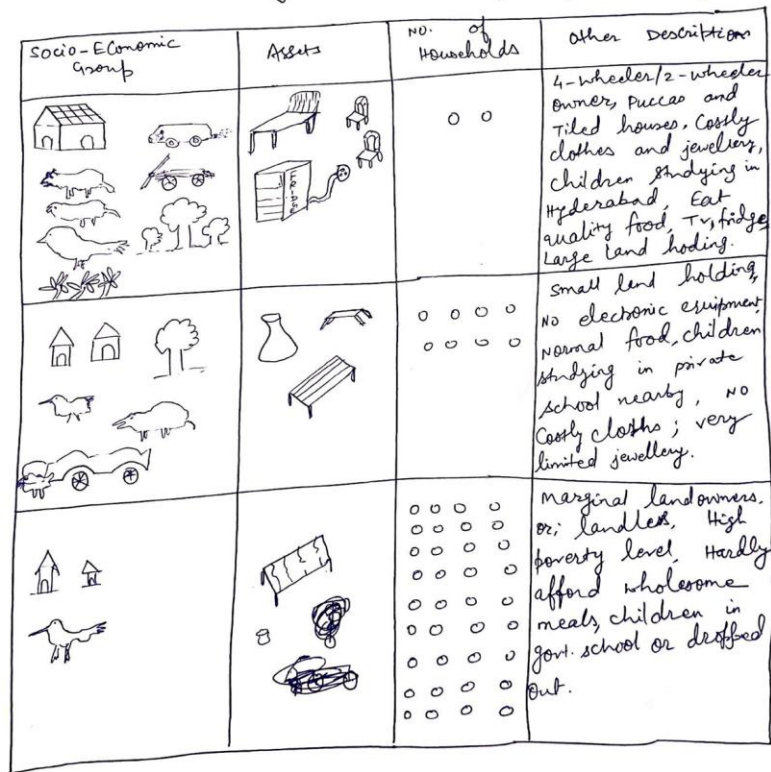 Socio-Economic
Group
Assets
No. of
Households
Other Description
4-wheeler/2-wheeler
owner, Puccao and
Tiled houses, Costly
clothes and jewellery,
children studying in
Hyderabad, Eat
quality food, Tv, fridge,
Large Land hoding.
Small land holding,
No electronic equipment,
Normal food, children
studying in private
school nearby, No
Costly cloths; very
limited jewellery.
Marginal landowners.
or; landless, High
poverty level, Hardly
afford wholesome
meals, children in
govt. school or dropped
out.